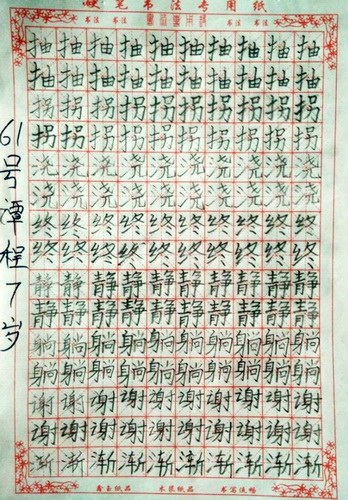 硬笔书法专用纸
书法 书法 书法 书法
抽抽抽抽抽抽抽抽抽抽
抽抽抽抽抽抽抽抽抽抽
拐拐拐拐拐拐拐拐拐拐
拐拐拐拐拐拐拐拐拐拐
浇浇浇浇浇浇浇浇浇浇
浇浇浇浇浇浇浇浇浇浇
终终终终终终终终终终
终终终终终终终终终终
静静静静静静静静静静
静静静静静静静静静静
躺躺躺躺躺躺躺躺躺躺
躺躺躺躺躺躺躺躺躺躺
谢谢谢谢谢谢谢谢谢谢
谢谢谢谢谢谢谢谢谢谢
渐渐渐渐渐渐渐渐渐渐
木浆纸品 书写流畅
61号潭程7岁